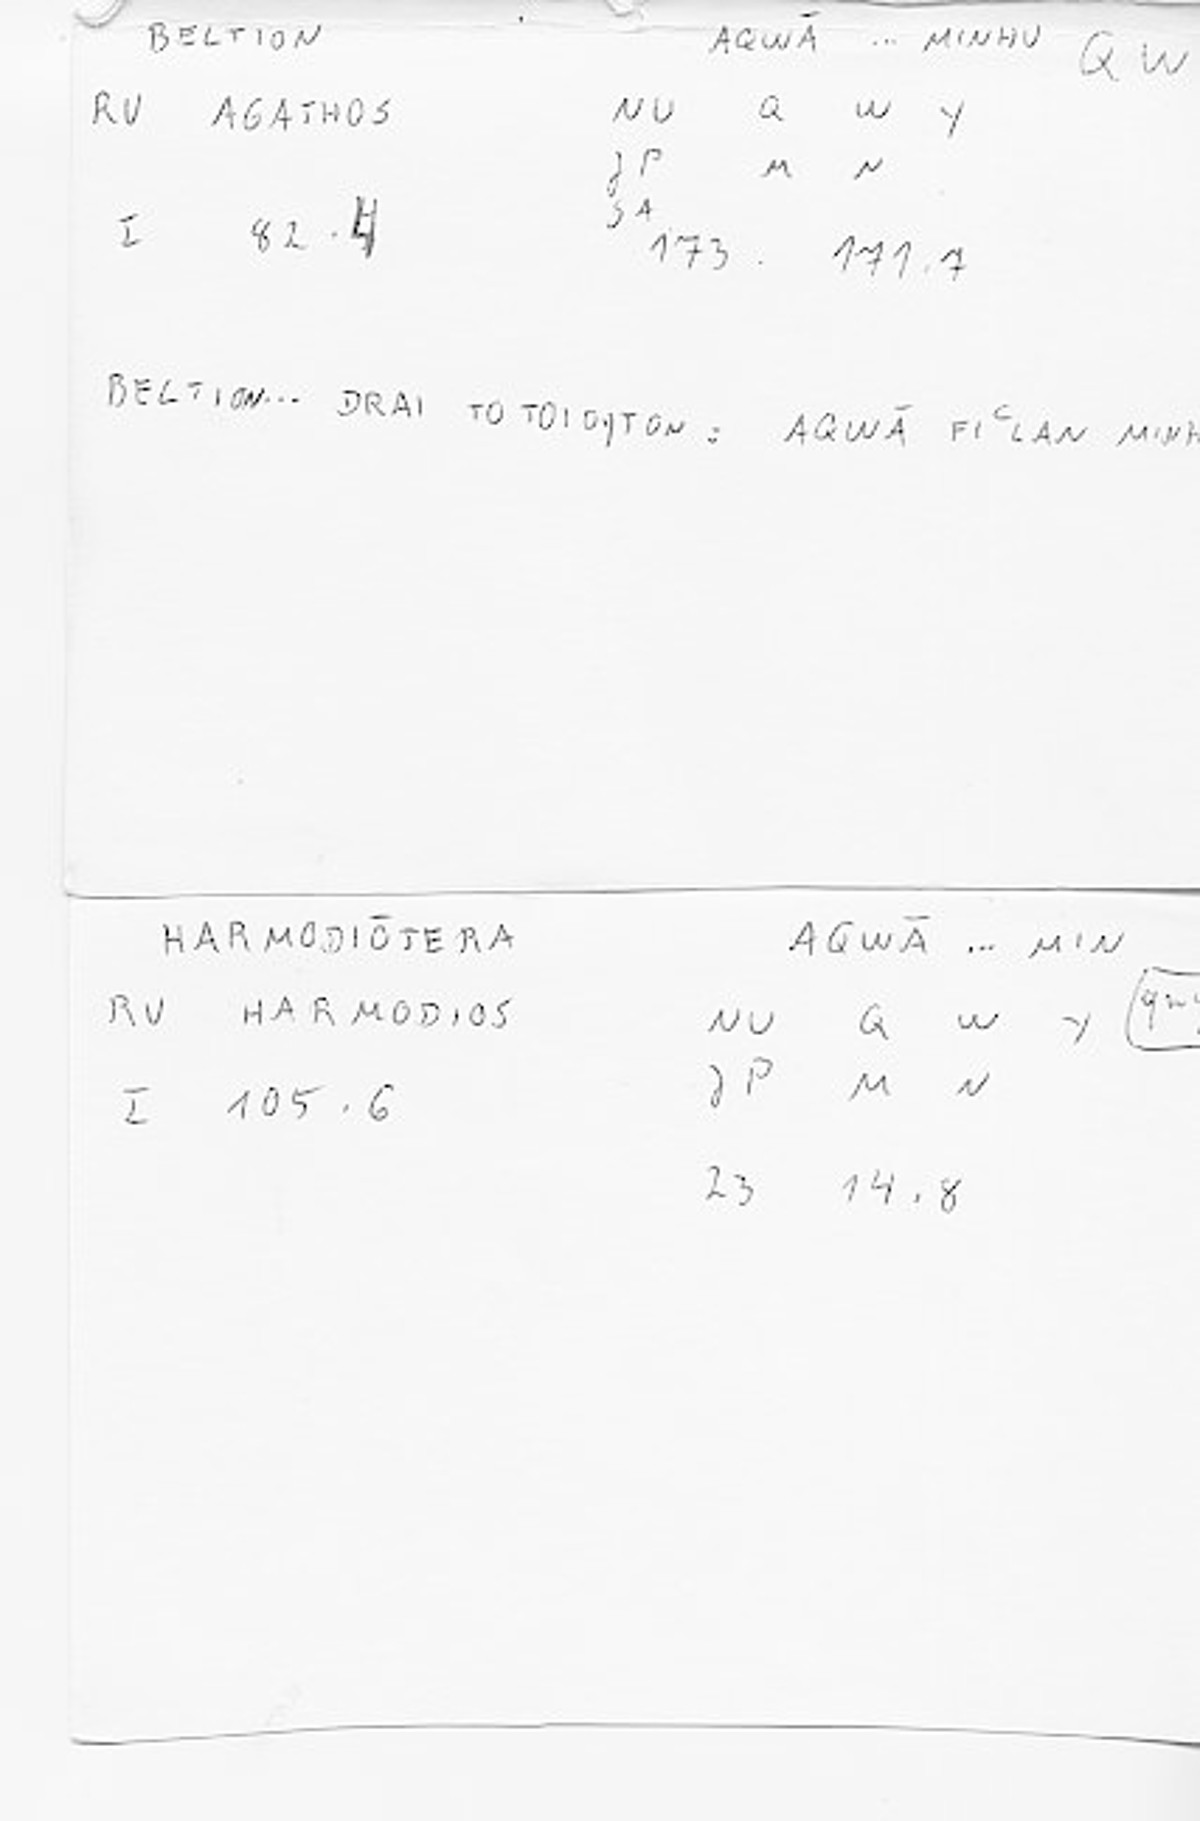 BELTION AQWĀ ... MINHU QW
RU AGATHOS NU Q W Y
JP M N
SA
I 82.4 173. 171.7
BELTION... DRAI TO TOIOYTON: AQWĀ FIᶜLAN MINH
HARMODIŌTERA AQWĀ ... MIN
RU HARMODIOS NU Q W Y qwy
JP M N
I 105.6
23 14.8